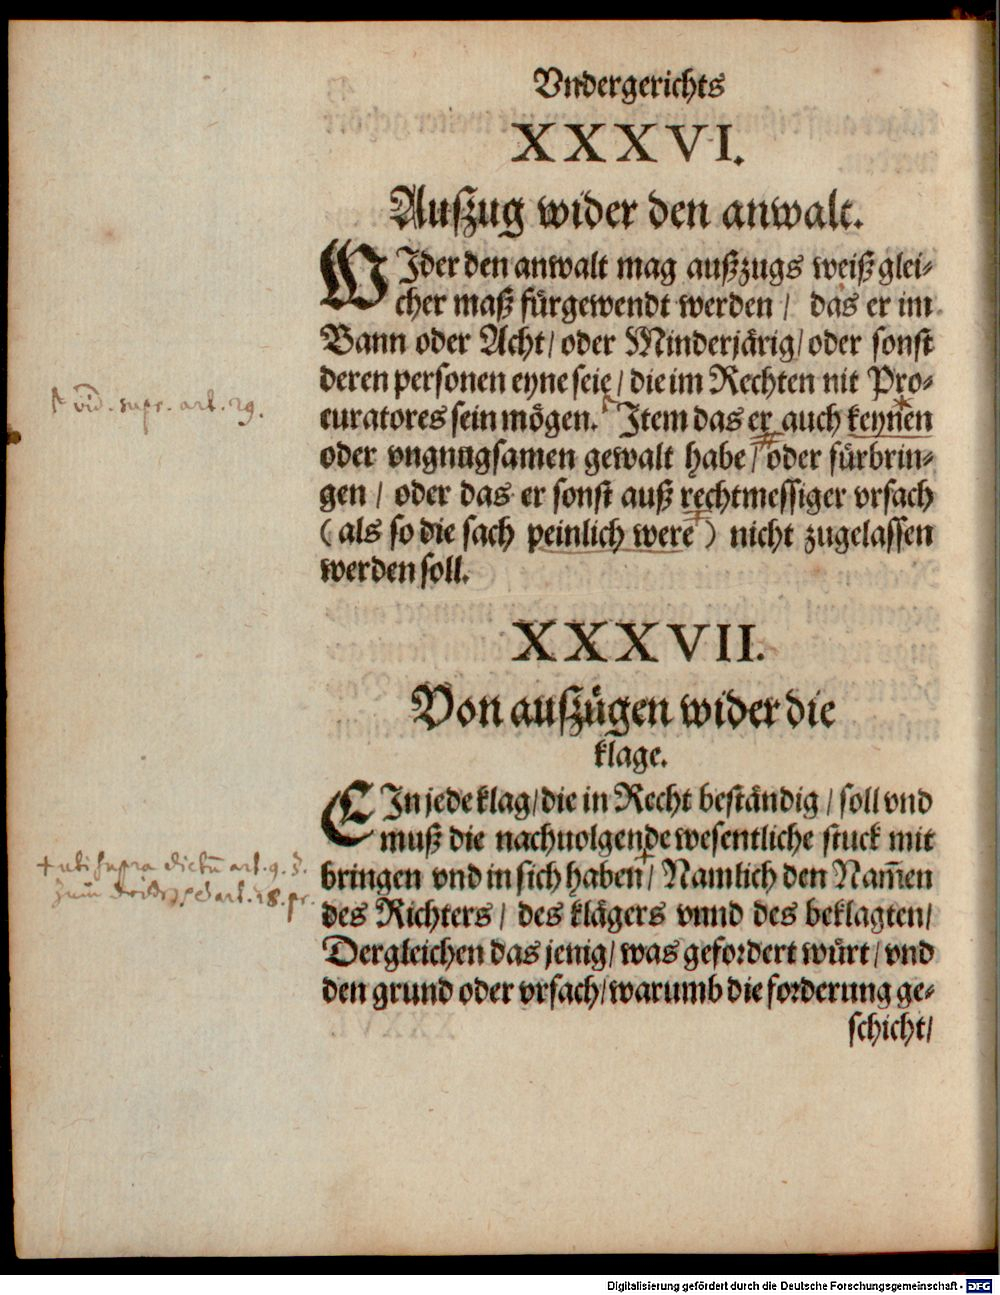 Vndergerichts
XXXVI.
Auſzug wider den anwalt.
WJder den anwalt mag auſzzugs weiſz glei⸗
cher maſz fürgewendt werden / das er im
Bann oder Acht / oder Minderjärig / oder ſonſt
deren perſonen eyne ſeie / die im Rechten nit Pro⸗
curatores ſein mögen. Jtem das er auch keynen
oder vngnugſamen gewalt habe / oder fürbrin⸗
gen / oder das er ſonſt auſz rechtmeſſiger vrſach
( als ſo die ſach peinlich were ) nicht zugelaſſen
werden ſoll.
vid. supr. art. 29.
XXXVII.
Von auſzügen wider die
klage.
EJn jede klag / die in Recht beſtändig / ſoll vnd
muſz die nachuolgende weſentliche ſtuck mit
bringen vnd in ſich haben / Namlich den Nam̄en
des Richters / des klägers vnnd des beklagten /
Dergleichen das jenig / was gefordert würt / vnd
den grund oder vrſach / warumb die forderung ge⸗
ſchicht /
+ uti supra dictū art. 9. §.
art. 28. pr.
Digitalisierung gefördert durch die Deutsche Forschungsgemeinschaft - DFG